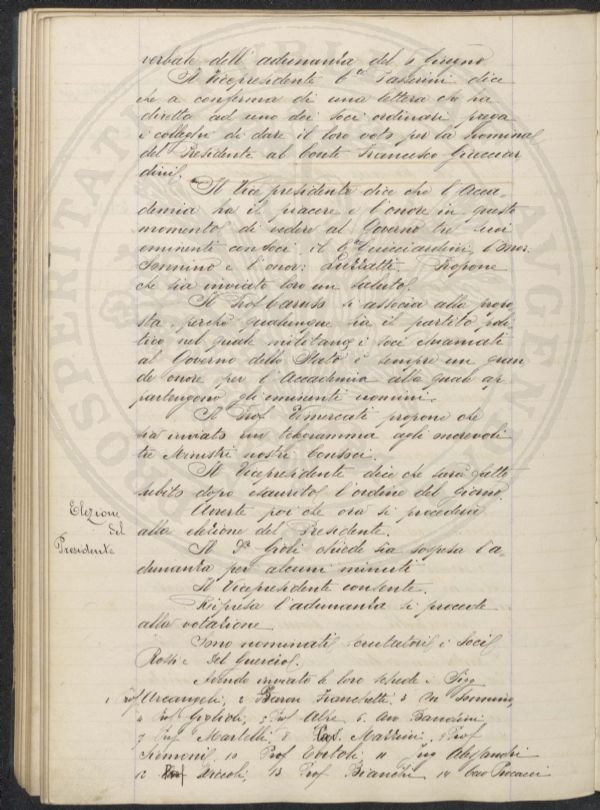 verbale dell'adunanza del 6 Giugno
Il Vicepresidente C.te Passerini dice
che a conferma di una lettera che ha
diretta ad uno dei soci ordinari prega
i colleghi di dare il loro voto per la nomina
del Presidente al Conte Francesco Guicciar
dini.
Il Vice presidente dice che l'Acca-
demia ha il piacere e l'onore in questo
momento di vedere al Governo tre suoi
eminenti consoci, il C.te Guicciardini, l'Onor.
Sonnino e l'onor: Luzzatti. Propone
che sia inviato loro un saluto.
Il Prof Caruso si associa alla propo
sta, perchè qualunque sia il partito poli
tico nel quale militano, i soci chiamati
al Governo dello Stato è sempre un gran
de onore per l'Accademia alla quale ap
partengono gli eminenti uomini.
Il Prof. Vimercati propone che
sia inviato un telegramma agli onorevoli
tre Ministri nostri Consoci.
Il Vicepresidente dice che sarà fatto
subito dopo esaurito l'ordine del giorno.
Averte poi che ora si procederà
alla elezione del Presidente.
Elezione
del
Presidente
Il Dr Gioli chiede sia sospesa l'a-
dunanza per alcuni minuti
Il Vicepresidente consente.
Ripresa l'adunanza si procede
alla votazione
Sono nominati scrutatori i soci
Rossi e Del Guercio.
Avendo inviato le loro schede i Sigg
1 Prof Arcangeli, 2 Baron Franchetti, 3 On Sonnino,
4 Prof Giglioli, 5 Prof Alpe 6. Avv Bandini,
7 Ing Martelli, 8 Mazzini, 9 Prof
Simoni, 10 Prof 11 Ing Alessandri
12 Niccoli, 13 Prof Bianchi 14 Cav Procacci